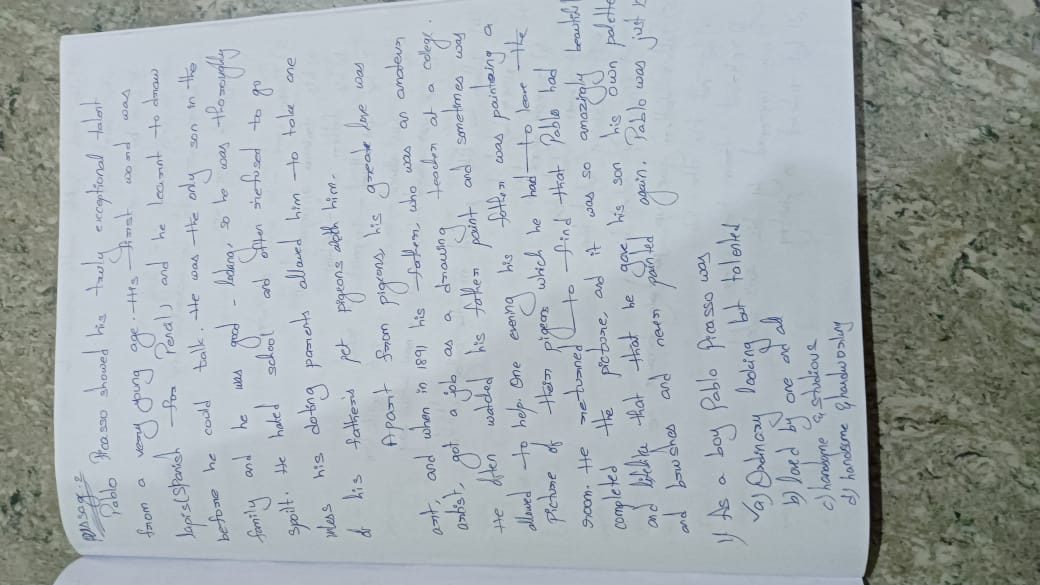 Passage:2
Pablo Picasso showed his truly exceptional talent
from a very young age. His first word was
lapis(Spanish for Pencil) and he learnt to draw
before he could talk. He was the only son in the
family and he was good-looking, so he was thoroughly
spoilt. He hated school and often refused to go
unless his doting parents allowed him to take one
of his father's pet pigeons with him.
Apart from pigeons, his great love was
art, and when in 1891 his father, who was an amateur
artist, got a job as a drawing teacher at a college.
He often watched his father paint and sometimes was
allowed to help. One evening his father was painting a
picture of their pigeons which he had to leave the
room. He returned to find that Pablo had
completed the picture, and it was so amazingly beautiful
and lifelike that that he gave his son his own palette
and brushes and never painted again. Pablo was just
1) As a boy Pablo Picasso was
a) Ordinary looking but talented
b) loved by one and all
c) handsome & studious
d) handsome & hardworking